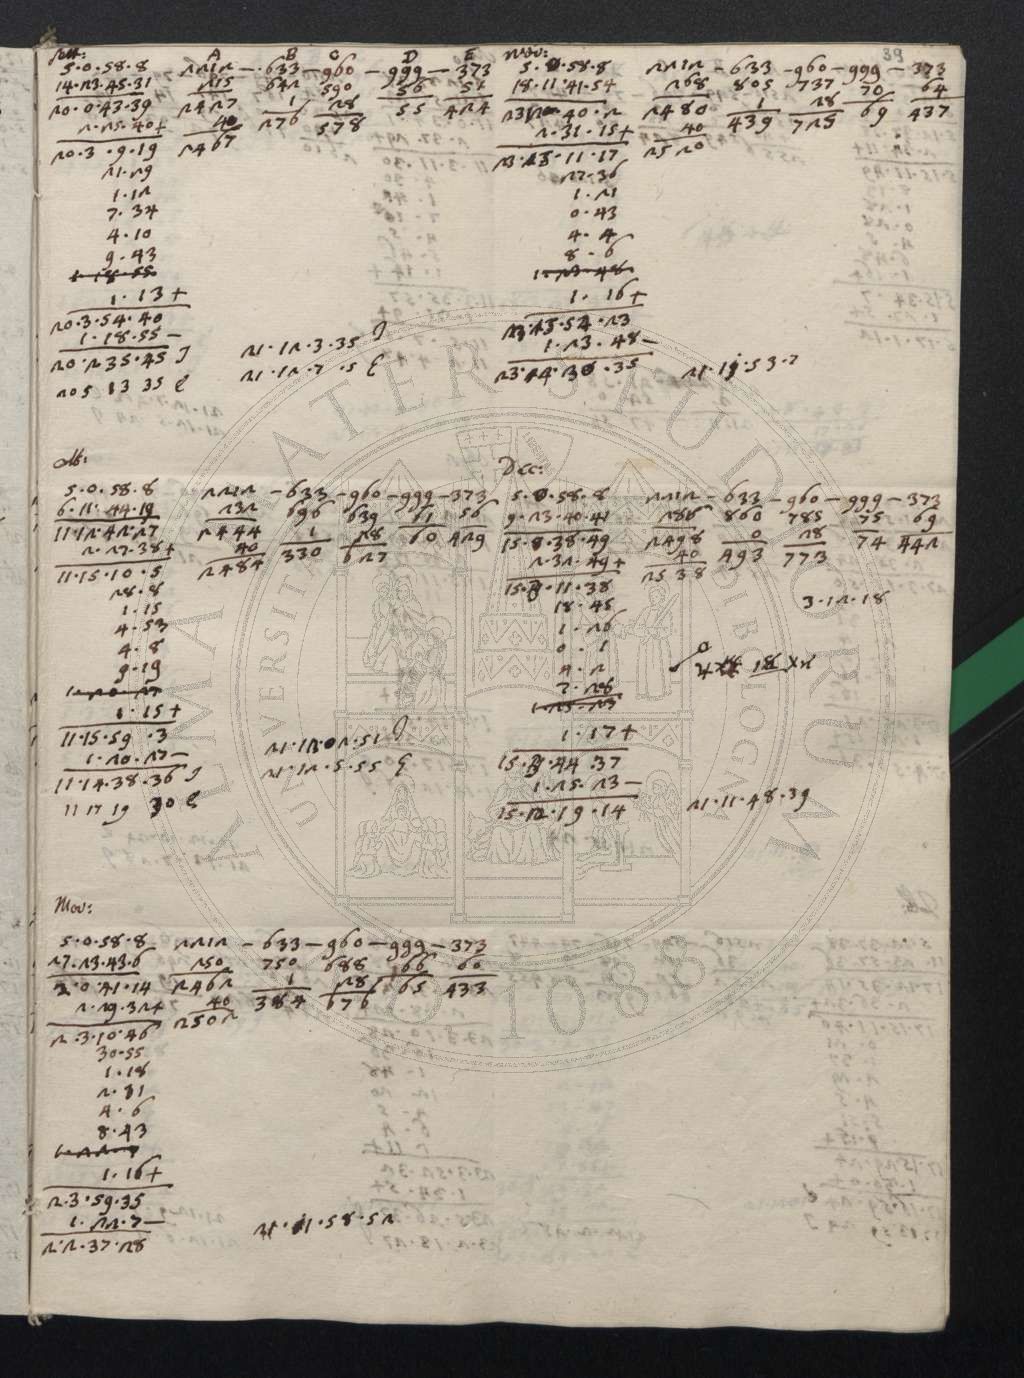 39
A B C D E
5·0·58·8 2212 – 633 – 960 – 999 – 373
14·23·45·31 215 642 590 56 51
20·0·43·39 2427 1 28 55 424
2·25·40+ 40 276 578
20·3·9·19 2467
21·29
1·12
7·34
4·10
9·43
1·18·55
1·13+
20·3·54·40
1·18·55–
20·2·35·45
21·12·3·35
20 5 13 35
21·12·7·5
Nov:
5·0·58·8 2212 – 633 – 960 – 999 – 373
18·11·41·54 268 805 737 70 64
40·2 2480 1 28 69 437
2·31·15+ 40 439 725
23·15·11·17 2520
27·36
1·21
0·43
4·4
8·6
1·23·48
1·16+
23·15·54·23
1·23·48–
23·14·30·35
21·11·53·7
5·0·58·8 2212 – 633 – 960 – 999 – 373
6·11·44·19 232 696 639 61 56
11·12·42·27 2444 1 28 60 429
2·27·38+ 40 330 627
11·15·10·5 2484
28·8
1·15
4·53
4·8
9·19
1·20·27
1·15+
11·15·59·3
1·20·27–
11·14·38·36
21·12·02·51
11 17 19 30
21·12·5·55
Dec:
5·0·58·8 2212 – 633 – 960 – 999 – 373
9·23·40·41 286 860 785 75 69
15·0·38·49 2498 0 28 74 442
2·32·49+ 40 493 773
15·3·11·38 2538
18·45
3·12·18
1·26
0·1
4·2
7·28
1·25·23
1·17+
15·3·44·37
1·25·23–
15·2·19·14
21·11·48·39
Nov:
5·0·58·8 2212 – 633 – 960 – 999 – 373
27·23·43·6 250 750 688 66 60
2·0·41·14 2462 1 28 65 433
2·29·32+ 40 384 676
2·3·10·46 2502
30·55
1·18
2·31
4·6
8·43
1·16+
2·3·59·35
1·22·7–
2·2·37·28
21·11·58·52
ALMA MATER STUDIORUM
UNIVERSITÀ DI BOLOGNA
1088